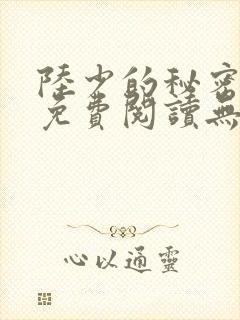 陸少的秘密
免費閱讀無
心以通靈